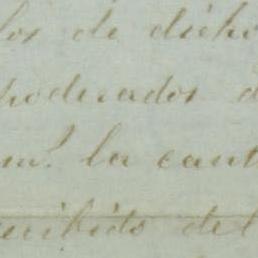 los de dicho
poderados
m? la cant
recibido del